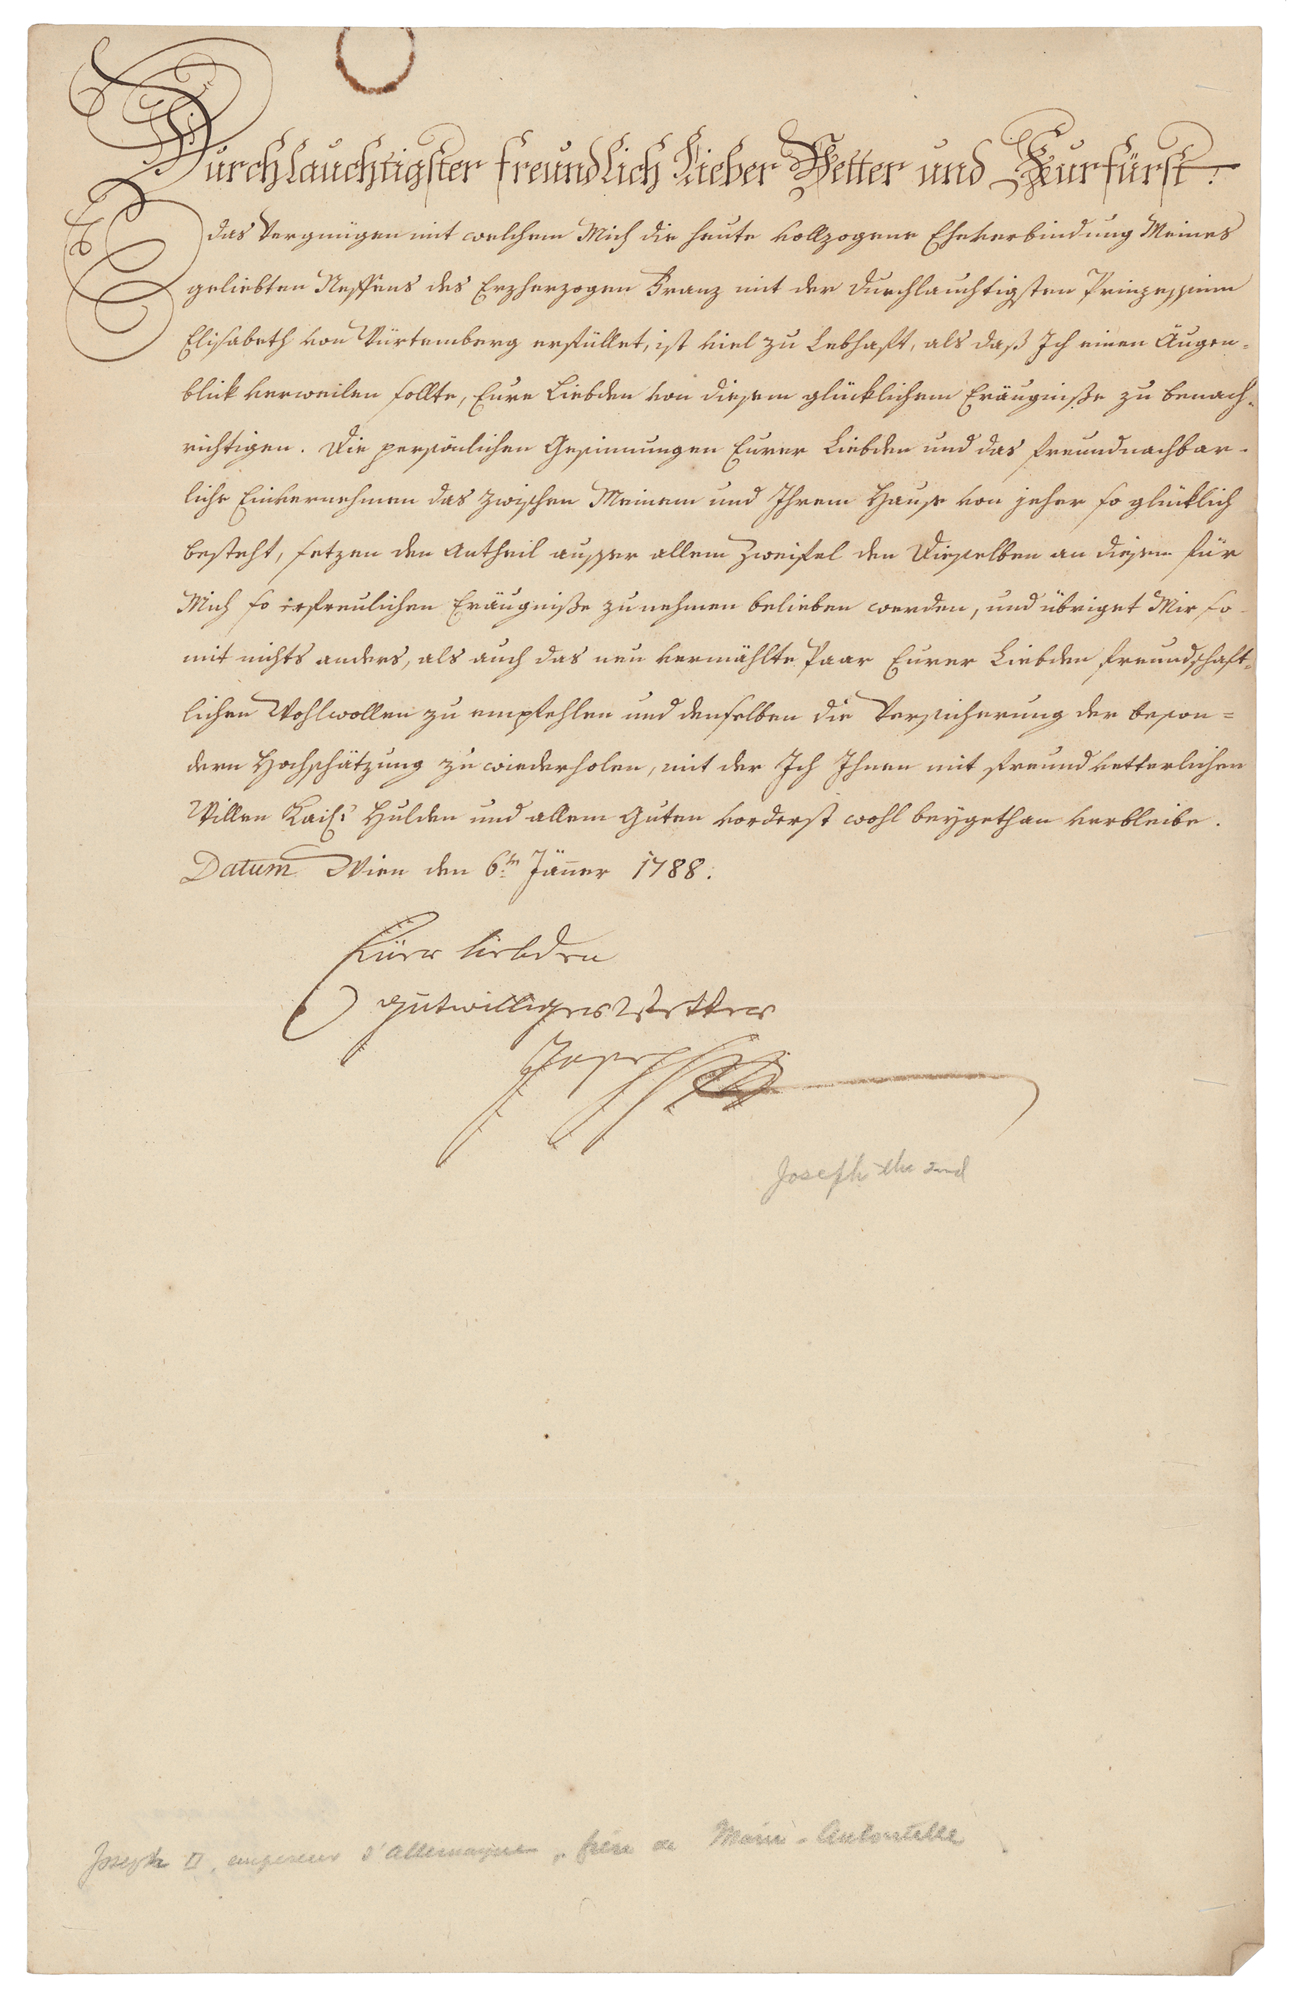 Durchlauchtigster freundlich lieber Vetter und Kurfürst.
Das Vergnügen mit welchem Mich die heute vollzogene Eheverbindung Meines
geliebten Neffens des Erzherzogen Franz mit der durchlauchtigsten Prinzessinn
Elisabeth von Würtemberg erfüllet, ist viel zu lebhaft, als daß Ich einen Augen-
blick verweilen sollte, Eure Liebden von diesem glücklichem Eräugniße zu benach-
richtigen. Die persönlichen Gesinnungen Eurer Liebden und das freundnachbar-
liche Einvernehmen das zwischen Meinem und Ihrem Hause von jeher so glücklich
besteht, setzen den Antheil ausser allem Zweifel den Dieselben an diesem für
Mich so erfreulichen Eräugniße zu nehmen belieben werden, und übriget Mir so-
mit nichts anders, als auch das neu vermählte Paar Eurer Liebden freundschaft-
lichen Wohlwollen zu empfehlen und denselben die Versicherung der beson-
dern Hochschätzung zu wiederholen, mit der Ich Ihnen mit freundvetterlichen
Willen Kais: Hulden und allem Guten vorderst wohl beygethan verbleibe.
Datum Wien den 6ten Jänner 1788.
Euer liebden
gutwilliger Vetter
Joseph
Joseph the 2nd
Joseph II, empereur d'Allemagne, frère de Marie-Antoinette